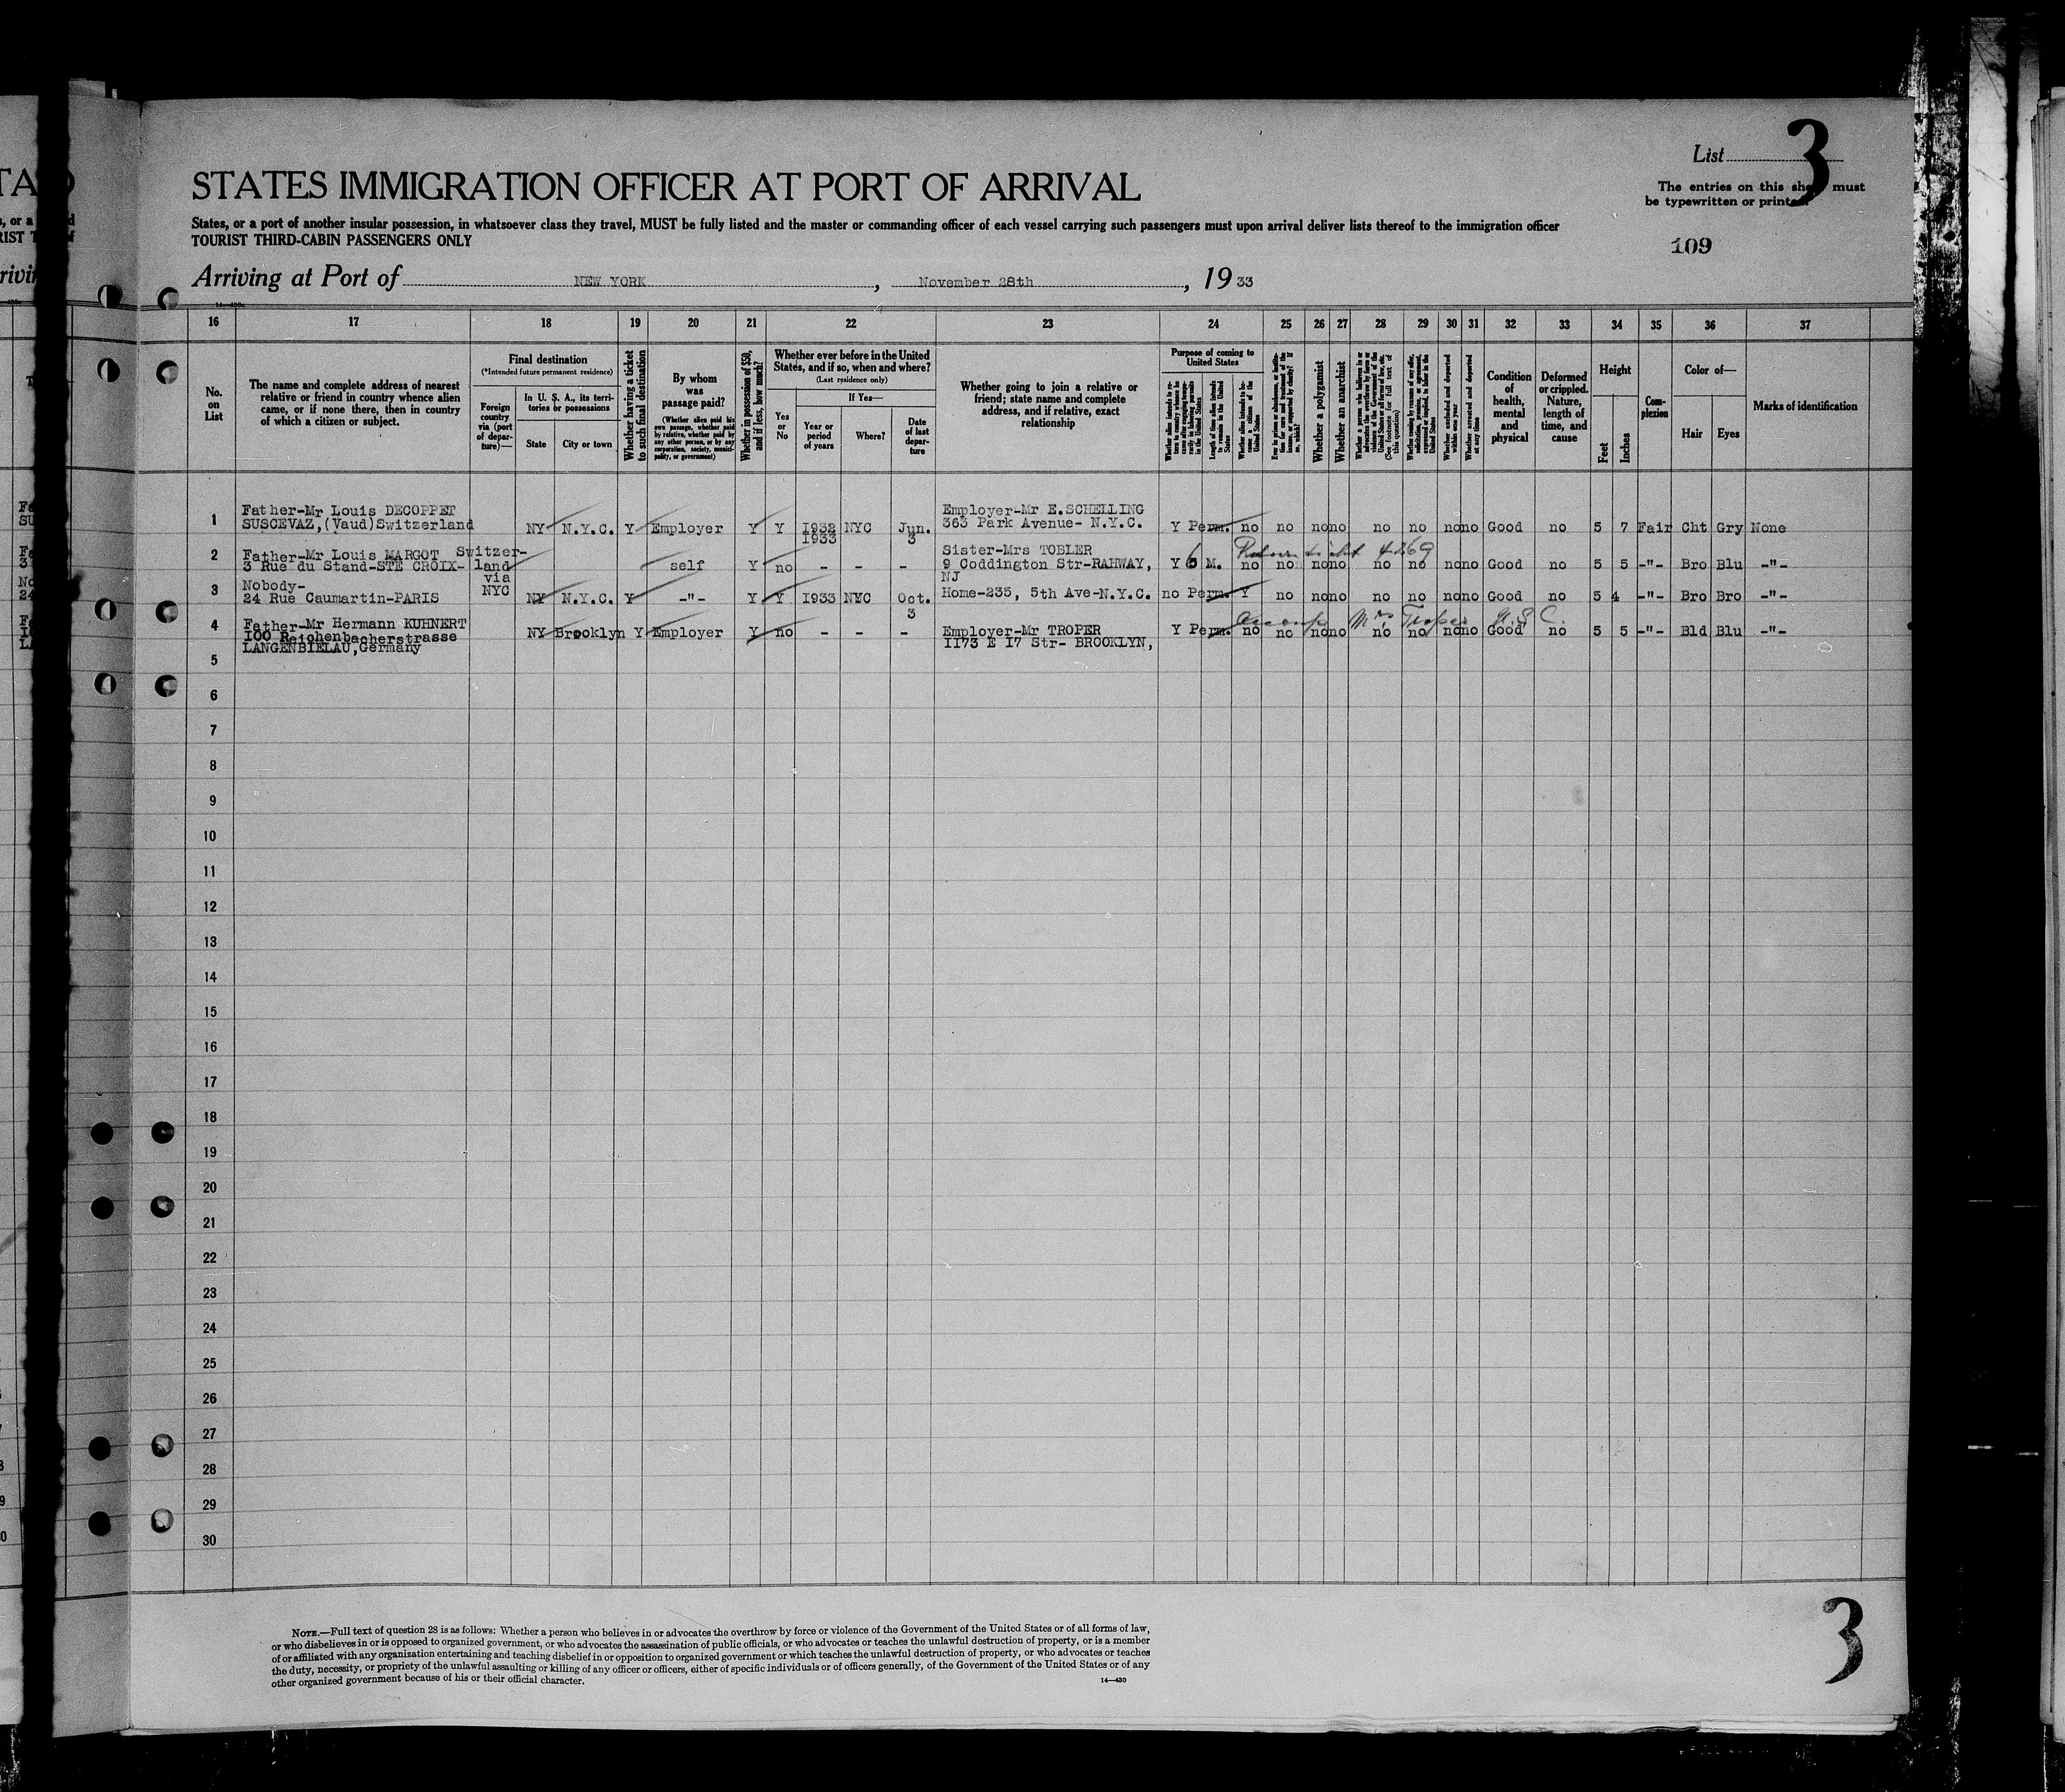 List 3
STATES IMMIGRATION OFFICER AT PORT OF ARRIVAL
The entries on this sheet must
be typewritten or printed
States, or a port of another insular possession, in whatsoever class they travel, MUST be fully listed and the master or commanding officer of each vessel carrying such passengers must upon arrival deliver lists thereof to the immigration officer
TOURIST THIRD-CABIN PASSENGERS ONLY
109
Arriving at Port of NEW YORK, November 28th, 1933
16 17 18 19 20 21 22 23 24 25 26 27 28 29 30 31 32 33 34 35 36 37
No. on List
The name and complete address of nearest
relative or friend in country whence alien
came, or if none there, then in country
of which a citizen or subject.
Final destination
(*Intended future permanent residence)
Foreign country via (port of departure)—
In U. S. A., its territories or possessions
State City or town
Whether having a ticket to such final destination
By whom was passage paid?
(Whether alien paid his own passage, whether paid by relative, whether paid by any other person, or by any corporation, society, municipality, or government)
Whether in possession of $50, and if less, how much?
Whether ever before in the United States, and if so, when and where?
(Last residence only)
Yes or No
If Yes—
Year or period of years
Where?
Date of last departure
Whether going to join a relative or
friend; state name and complete
address, and if relative, exact
relationship
Purpose of coming to United States
Whether a polygamist
Whether an anarchist
Condition of health, mental and physical
Deformed or crippled. Nature, length of time, and cause
Height
Feet Inches
Complexion
Color of—
Hair Eyes
Marks of identification
1 Father-Mr Louis DECOPPET
SUSCEVAZ,(Vaud)Switzerland NY N.Y.C. Y Employer Y Y 1932 1933 NYC Jun. 3 Employer-Mr E.SCHELLING
363 Park Avenue- N.Y.C. Y Perm. no no no no no no no no Good no 5 7 Fair Cht Gry None
2 Father-Mr Louis MARGOT Switzer-
3 Rue du Stand-STE CROIX- land self Y no - - - Sister-Mrs TOBLER
9 Coddington Str-RAHWAY, NJ Y 6 M. Return ticket 4269 no no no no no no no no Good no 5 5 -"- Bro Blu -"-
3 Nobody-
24 Rue Caumartin-PARIS via NYC NY N.Y.C. Y -"- Y Y 1933 NYC Oct. 3 Home-235, 5th Ave-N.Y.C. no Perm. Y no no no no no no no Good no 5 4 -"- Bro Bro -"-
4 Father-Mr Hermann KUHNERT
100 Reichenbacherstrasse
LANGENBIELAU,Germany NY Brooklyn Y Employer Y no - - - Employer-Mr TROPER
1173 E 17 Str- BROOKLYN, Y Perm. Mrs Troper no no no no no no no no Good no 5 5 -"- Bld Blu -"-
5
6
7
8
9
10
11
12
13
14
15
16
17
18
19
20
21
22
23
24
25
26
27
28
29
30
NOTE.—Full text of question 28 is as follows: Whether a person who believes in or advocates the overthrow by force or violence of the Government of the United States or of all forms of law,
or who disbelieves in or is opposed to organized government, or who advocates the assassination of public officials, or who advocates or teaches the unlawful destruction of property, or is a member
of or affiliated with any organization entertaining and teaching disbelief in or opposition to organized government or which teaches the unlawful destruction of property, or who advocates or teaches
the duty, necessity, or propriety of the unlawful assaulting or killing of any officer or officers, either of specific individuals or of officers generally, of the Government of the United States or of any
other organized government because of his or their official character.
14—430
3